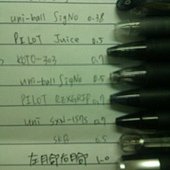 uni-ball Signo 0.38
PILOT Juice 0.5
KOTO-303 0.7
uni-ball Signo 0.5
PILOT REXGRIP 0.7
uni SXN-157S 0.7
SKB 0.5
1.0